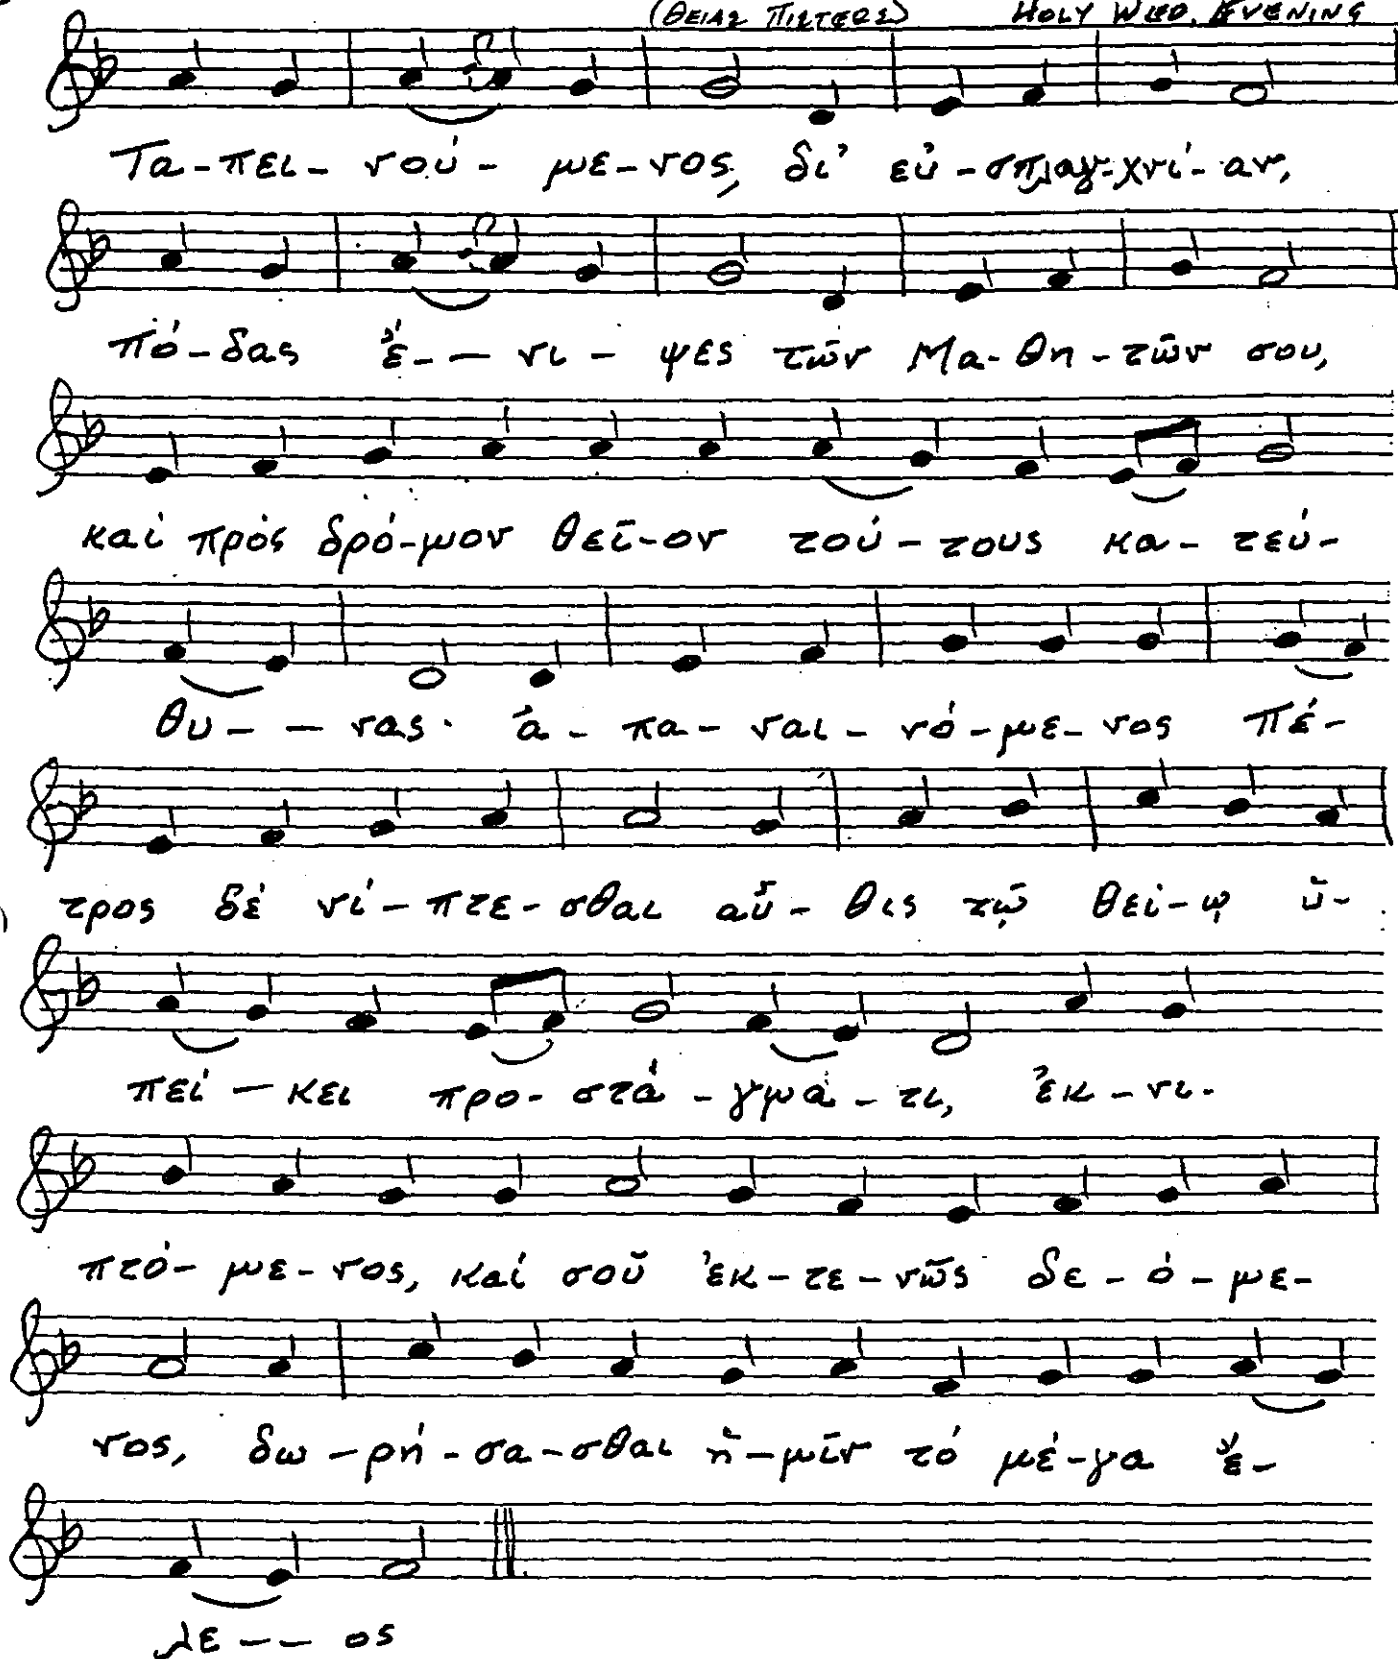 (ΘΕΙΑΣ ΠΙΣΤΕΩΣ) HOLY WED. EVENING
Τα-πει-νού-με-νος, δι' εὐ-σπλαγ-χνί-αν,
πό-δας ἔ--νι-ψες τῶν Μα-θη-τῶν σου,
καί πρός δρό-μον θεῖ-ον τού-τους κα-τεύ-
θυ--νας· ἀ-πα-ναι-νό-με-νος Πέ-
τρος δέ νί-πτε-σθαι αὖ-θις τῷ θεί-ῳ ὑ-
πεί-κει προ-στά-γμα-τι, ἐκ-νι-
πτό-με-νος, καί σοῦ ἐκ-τε-νῶς δε-ό-με-
νος, δω-ρή-σα-σθαι ἡ-μῖν τό μέ-γα ἔ-
λε--ος